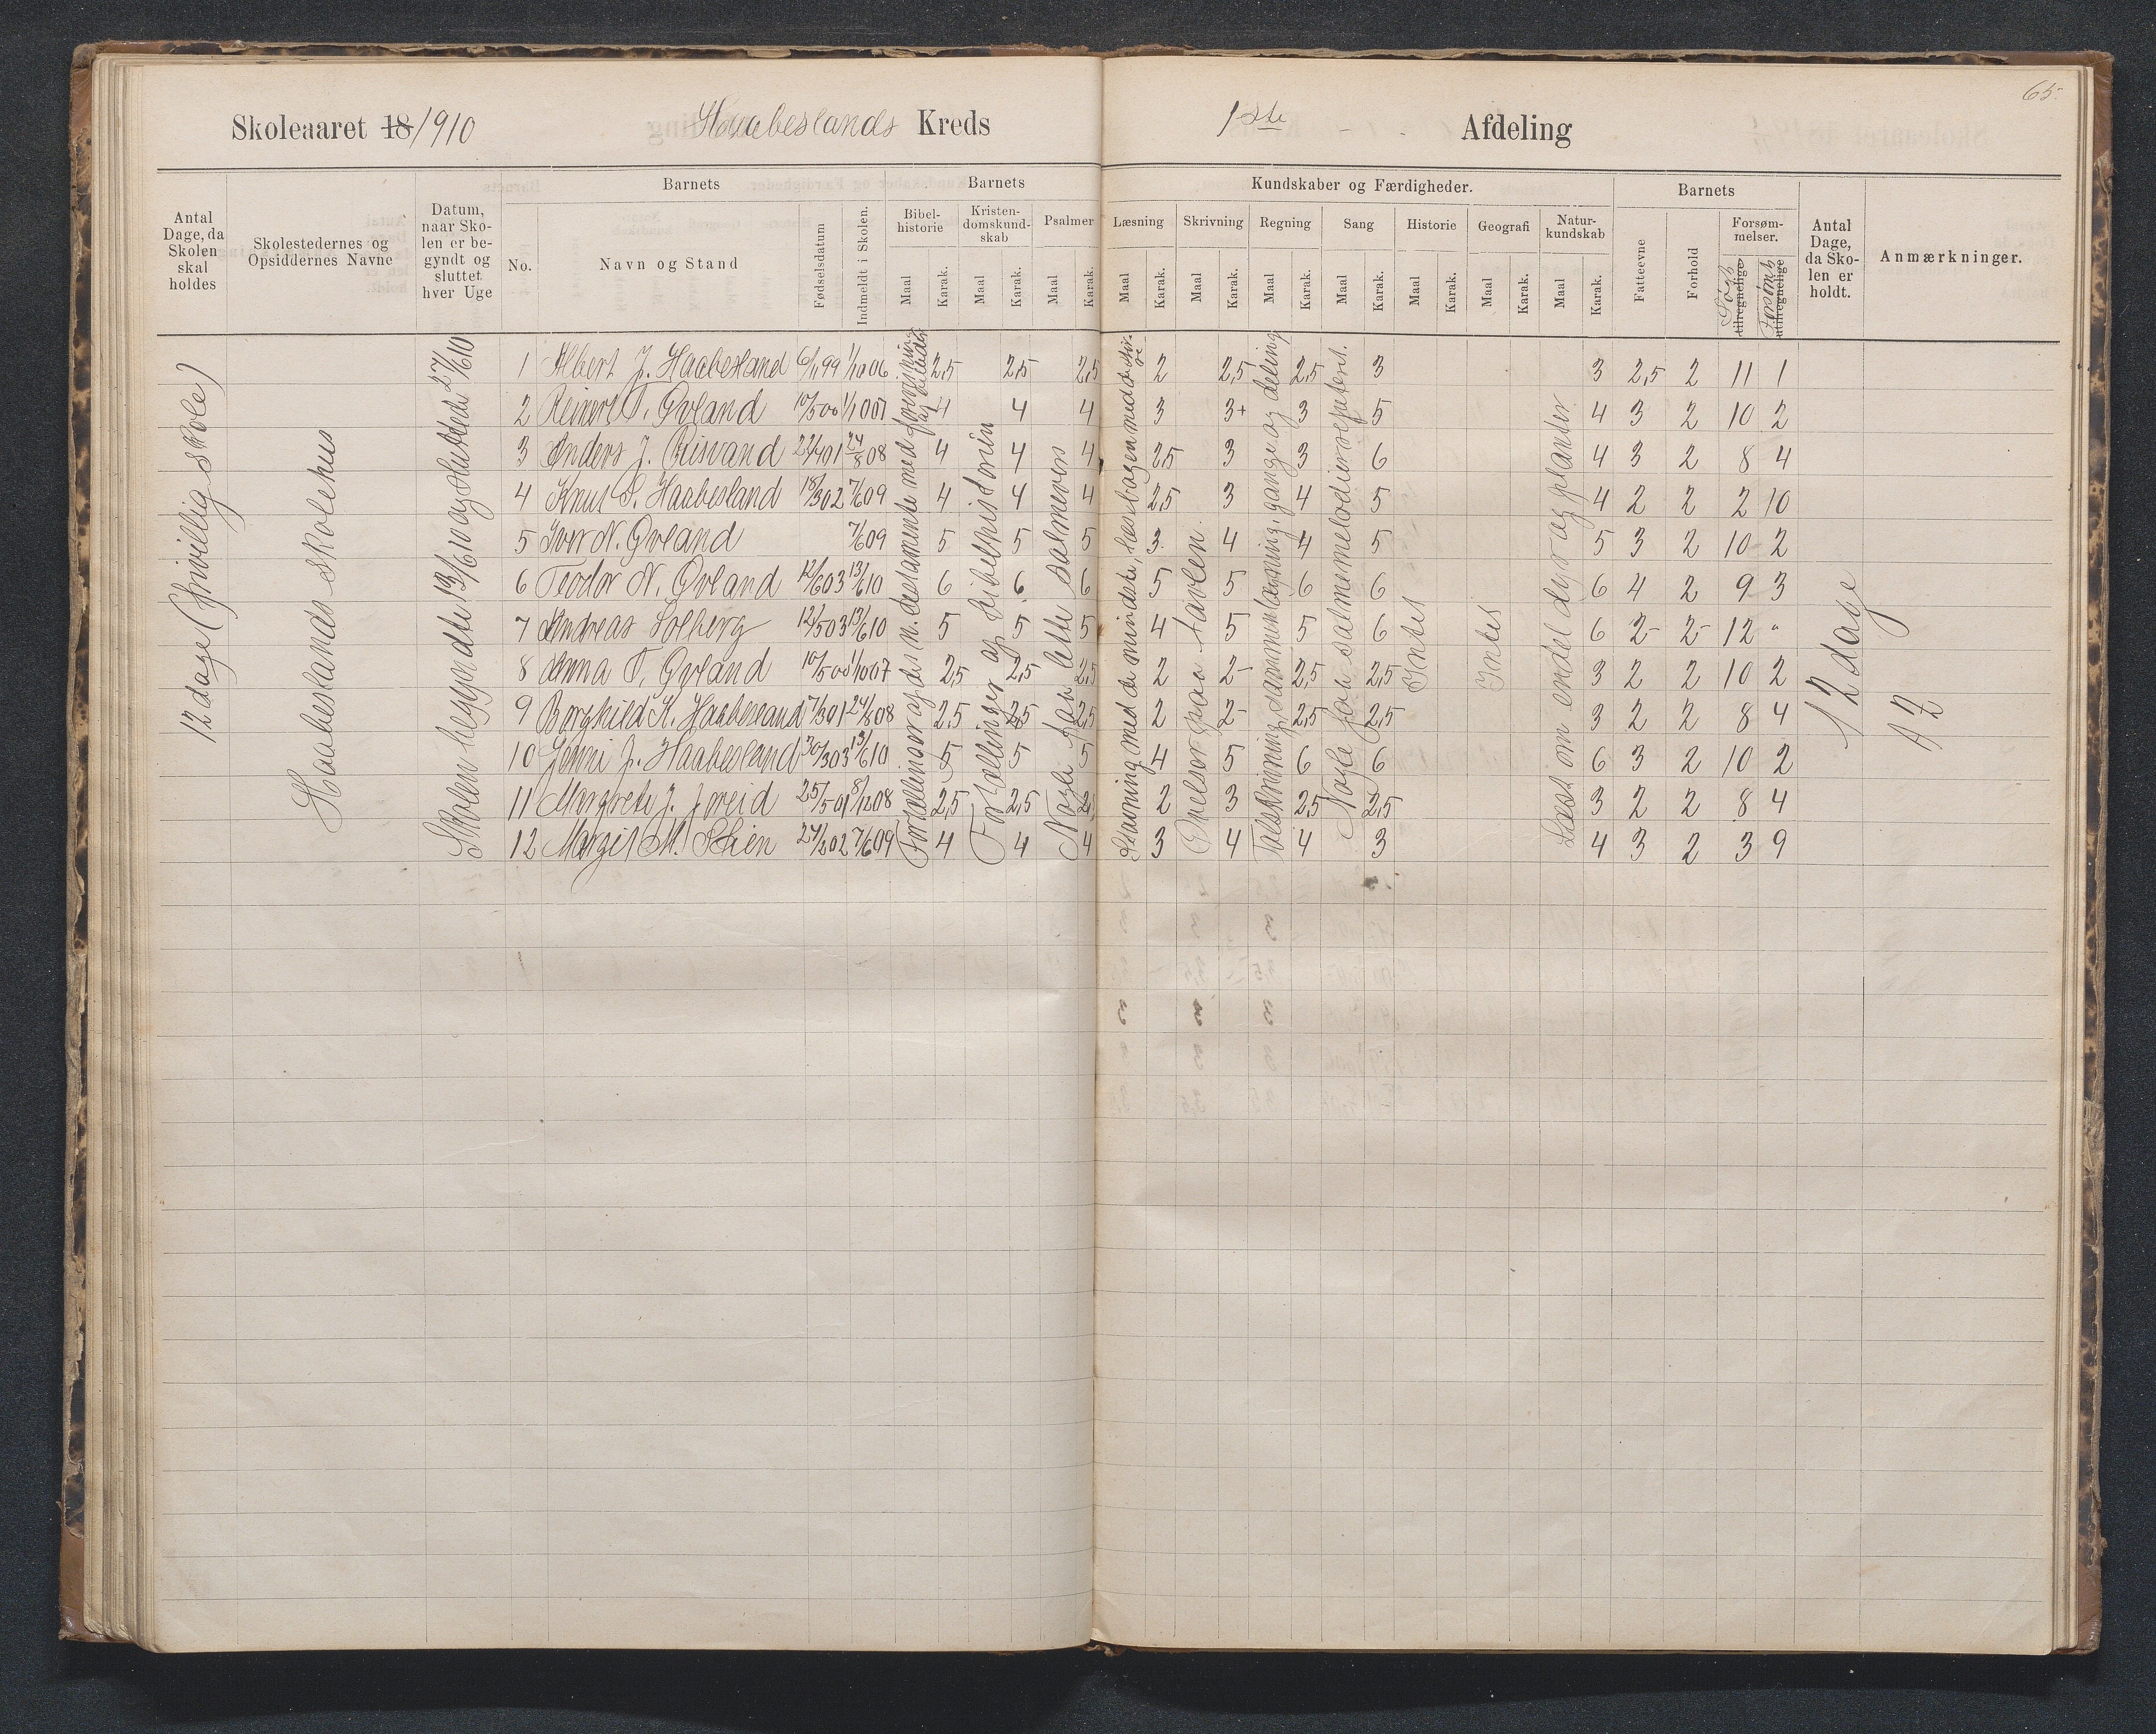 65.
Skoleaaret 18/1910 Haabeslands Kreds 1ste Afdeling
Antal Dage, da Skolen skal holdes
Skolestedernes og Opsiddernes Navne
Datum, naar Skolen er begyndt og sluttet hver Uge
Barnets
No.
Navn og Stand
Fødselsdatum
Indmeldt i Skolen.
Barnets
Bibelhistorie
Kristendomskundskab
Psalmer
Maal Karak. Maal Karak. Maal Karak.
Kundskaber og Færdigheder.
Læsning Skrivning Regning Sang Historie Geografi Naturkundskab
Maal Karak. Maal Karak. Maal Karak. Maal Karak. Maal Karak. Maal Karak. Maal Karak.
Barnets
Fatteevne
Forhold
Forsømmelser.
Søgt
tilregnelige
Forsømt
utilregnelige
Antal Dage, da Skolen er holdt.
Anmærkninger.
12 dage (frivillig skole)
Haabeslands skolehus
Skolen begyndte 13/6 10 og sluttede 27/6 10
Fortællinger af bibelhistorien
Nogle faa lette salmevers
Stavning med de mindste, læsebogen med de større
Øvelser paa tavlen.
Talskrivning, sammenlægning, gange og deling
Nogle faa salmemelodier repetert.
Intet
Intet
Læst om endel dyr og planter
12 dage
1 Albert J. Haabesland 6/11 99 1/10 06 2,5 2,5 2,5 2 2,5 2,5 3 3 2,5 2 11 1
2 Reinert T. Øvland 10/5 00 1/10 07 4 4 4 3 3+ 3 5 4 3 2 10 2
3 Anders J. Risvand 24/8 08 4 4 4 2,5 3 3 6 4 3 2 8 4
4 Knut S. Haabesland 18/3 02 7/6 09 4 4 4 2,5 3 4 5 4 2 2 2 10
5 Iver N. Øvland 7/6 09 5 5 5 3 4 4 5 5 3 2 10 2
6 Teodor N. Øvland 12/6 03 13/6 10 6 6 6 5 5 6 6 6 4 2 9 3
7 Andreas Solberg 12/5 03 13/6 10 5 5 5 4 5 5 6 6 2- 2- 12 "
8 Anna T. Øvland 10/5 00 1/10 07 2,5 2,5 2,5 2 2- 2,5 2,5 3 2 2 10 2
9 Borghild K. Haabesland 7/3 01 24/8 08 2,5 2,5 2,5 2 2- 2,5 2,5 3 2 2 8 4
10 Jenni J. Haabesland 30/3 03 13/6 10 5 5 5 4 5 6 6 6 3 2 10 2
11 Margrete J. 25/5 01 08 2,5 2,5 2,5 2 3 2,5 2,5 3 2 2 8 4
12 Margit M. 02 7/6 09 4 4 4 3 4 4 3 4 3 2 3 9